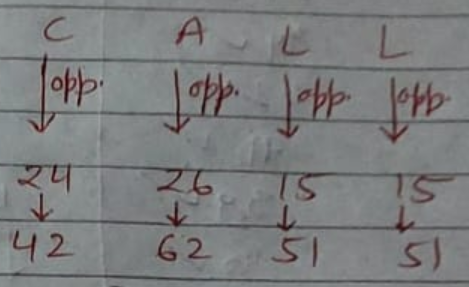 C A L L
opp. opp. opp. opp.
24 26 15 15
42 62 51 51